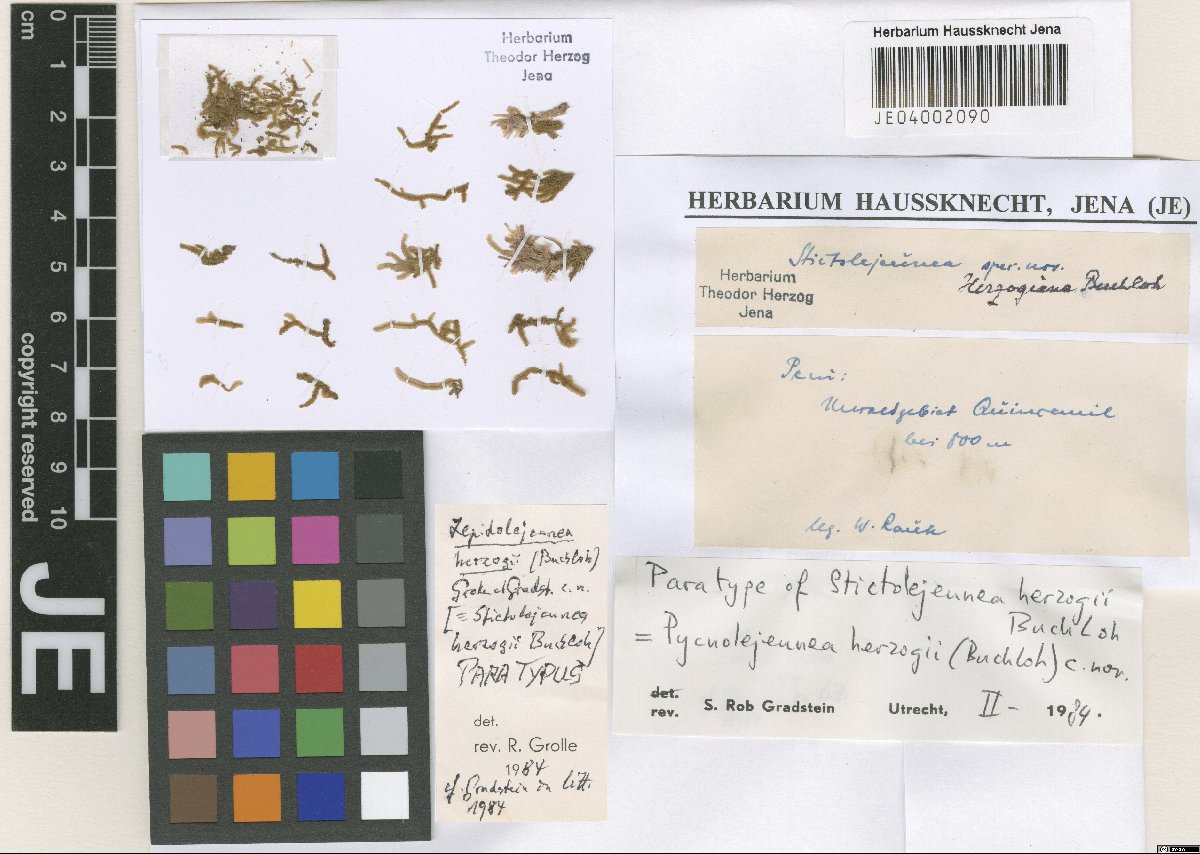 cm
0
1
2
3
4
5
6
7
8
9
10
copyright reserved
JE
Herbarium
Theodor Herzog
Jena
Herbarium Haussknecht Jena
JE04002090
HERBARIUM HAUSSKNECHT, JENA (JE)
Stictolejeunea spec. nov.
Herzogiana Buchloh
Herbarium
Theodor Herzog
Jena
Peru:
Urwaldgebiet Quincemil
bei 800 m
leg. W. Rauh
Lepidolejeunea
herzogii (Buchloh)
Grolle et Gradst. c.n.
[≡ Stictolejeunea
herzogii Buchloh]
PARATYPUS
det.
rev. R. Grolle
1984
cf. Gradstein in litt.
1984
Paratype of Stictolejeunea herzogii
Buchloh
= Pycnolejeunea herzogii (Buchloh) c. nov.
det.
rev. S. Rob Gradstein Utrecht, II - 1984.